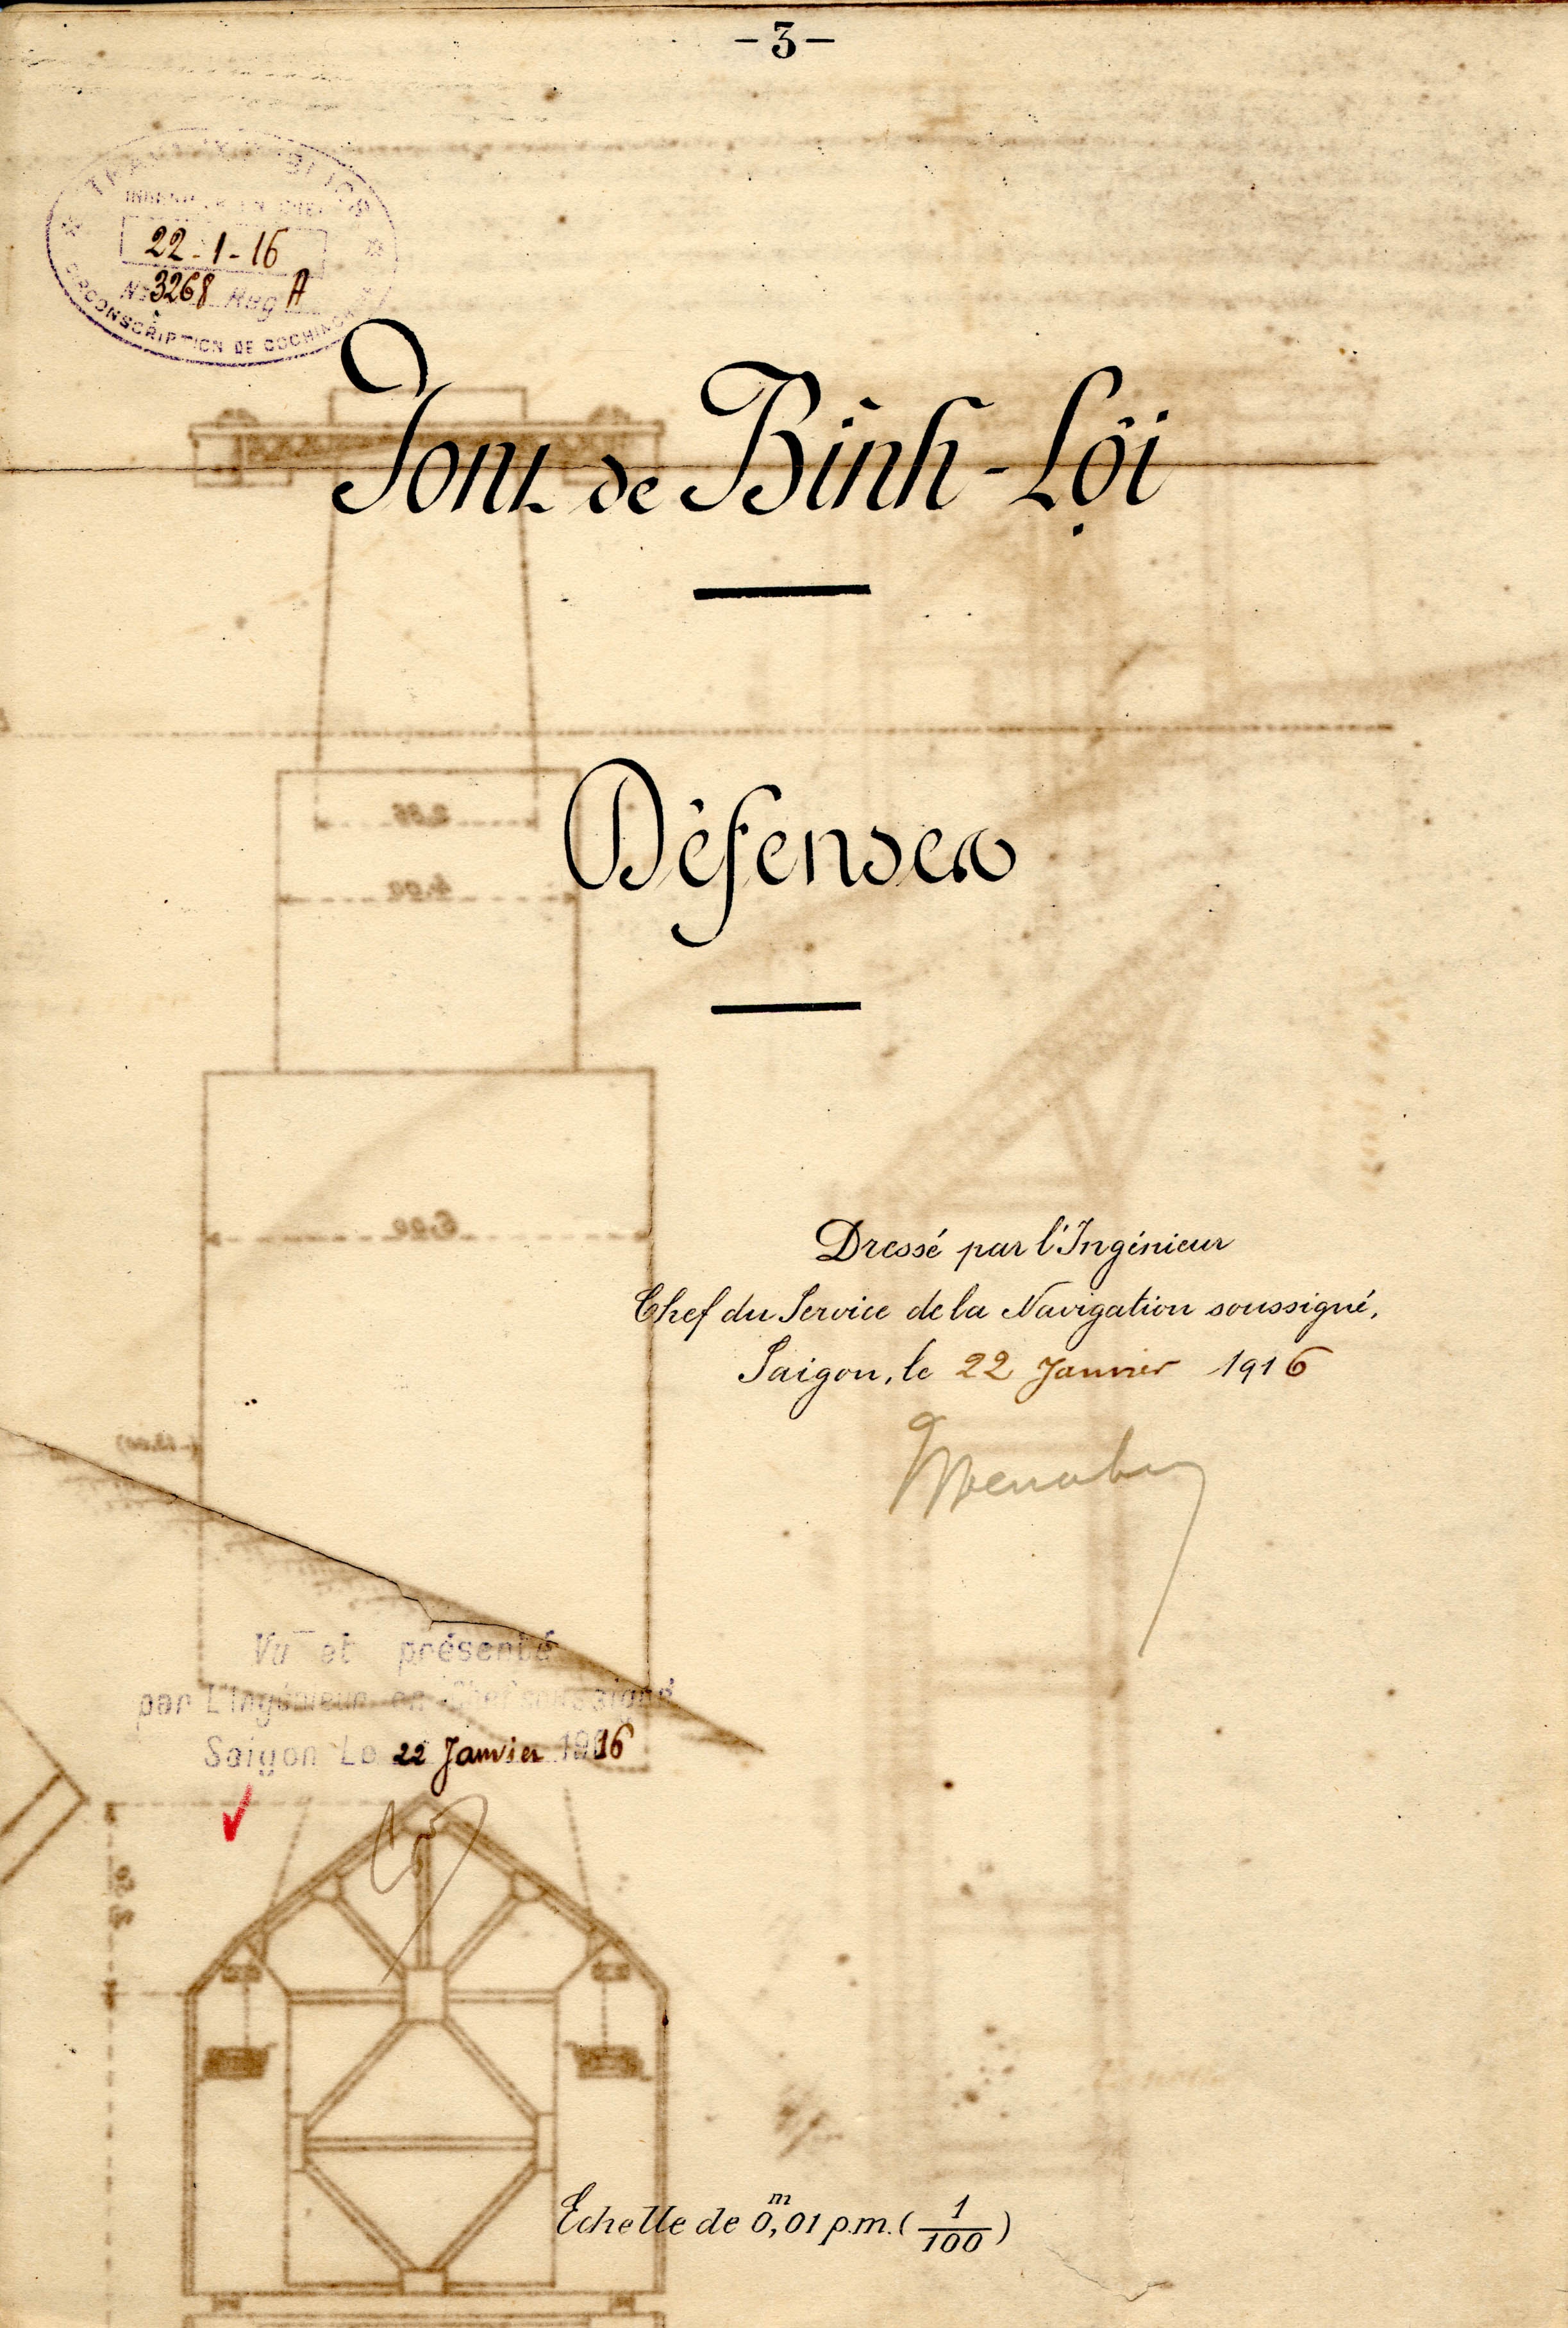 - 3 -
TRAVAUX PUBLICS
INGENIEUR EN CHEF
22-1-16
N° 3268 Reg A
CIRCONSCRIPTION DE COCHINCHINE
Pont de Bình-Lợi
Défenses
2,86
4,00
6,00
(-13.00)
Dressé par l'Ingénieur
Chef du Service de la Navigation soussigné,
Saigon, le 22 Janvier 1916
Vu et présenté
par L'Ingénieur en Chef soussigné
Saigon Le 22 Janvier 1916
Échelle de 0,m01 p.m. (1/100)